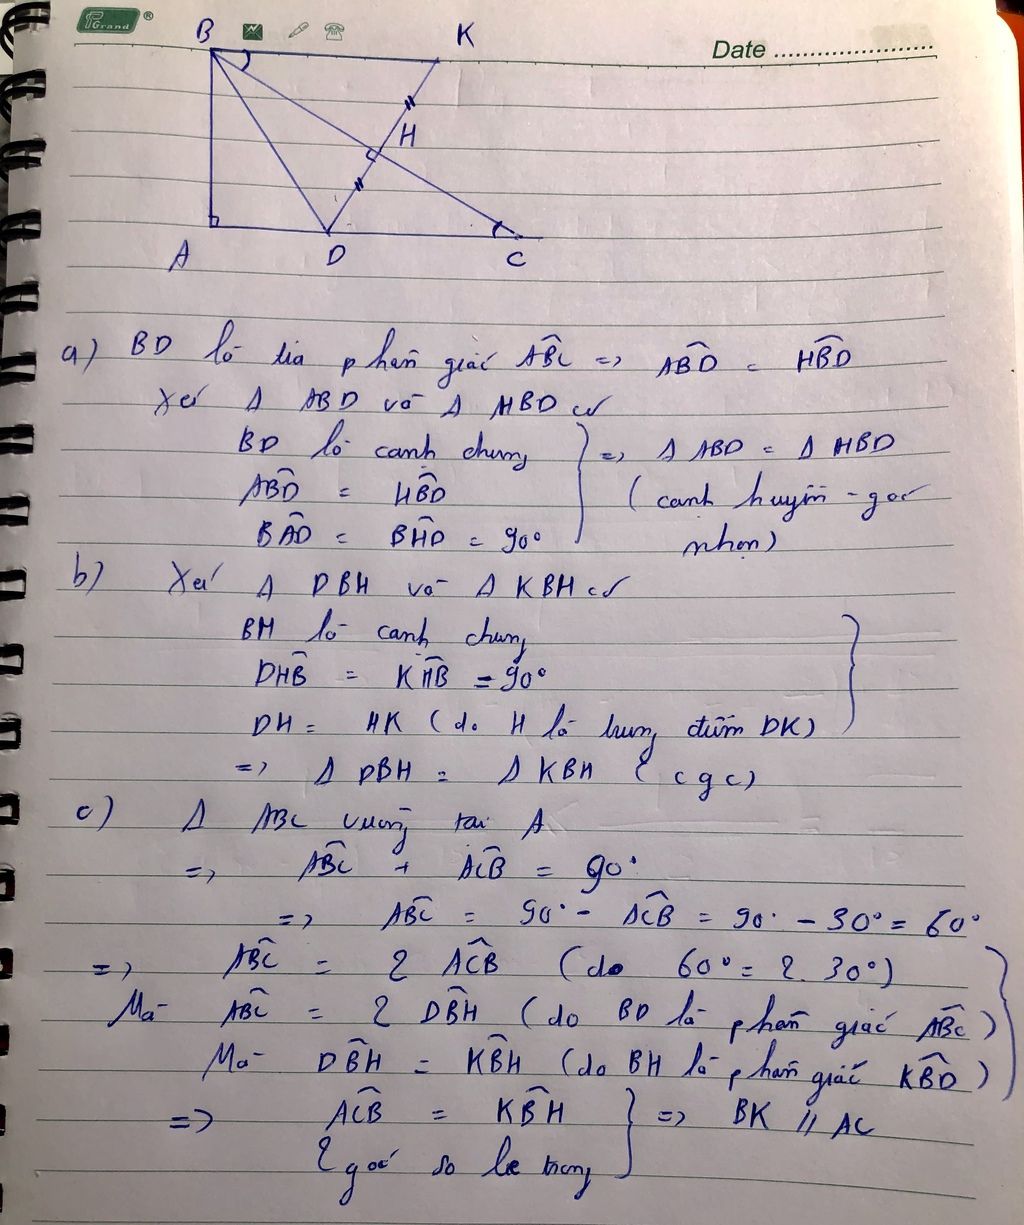 PGrand ®
Date
B K
H
A D C
a) BD là tia phân giác ABC => ABD = HBD
Xét Δ ABD và Δ HBD có
BD là cạnh chung } => Δ ABD = Δ HBD
ABD = HBD (cạnh huyền - góc
BAD = BHD = 90° nhọn)
b) Xét Δ DBH và Δ KBH có
BH là cạnh chung
DHB = KHB = 90°
DH = HK (do H là trung điểm DK) }
=> Δ DBH = Δ KBH (cgc)
c) Δ ABC vuông tại A
=> ABC + ACB = 90°
=> ABC = 90° - ACB = 90° - 30° = 60°
=> ABC = 2 ACB (do 60° = 2.30°)
Mà ABC = 2 DBH (do BD là phân giác ABC)
Mà DBH = KBH (do BH là phân giác KBD) }
=> ACB = KBH } => BK // AC
2 góc so le trong